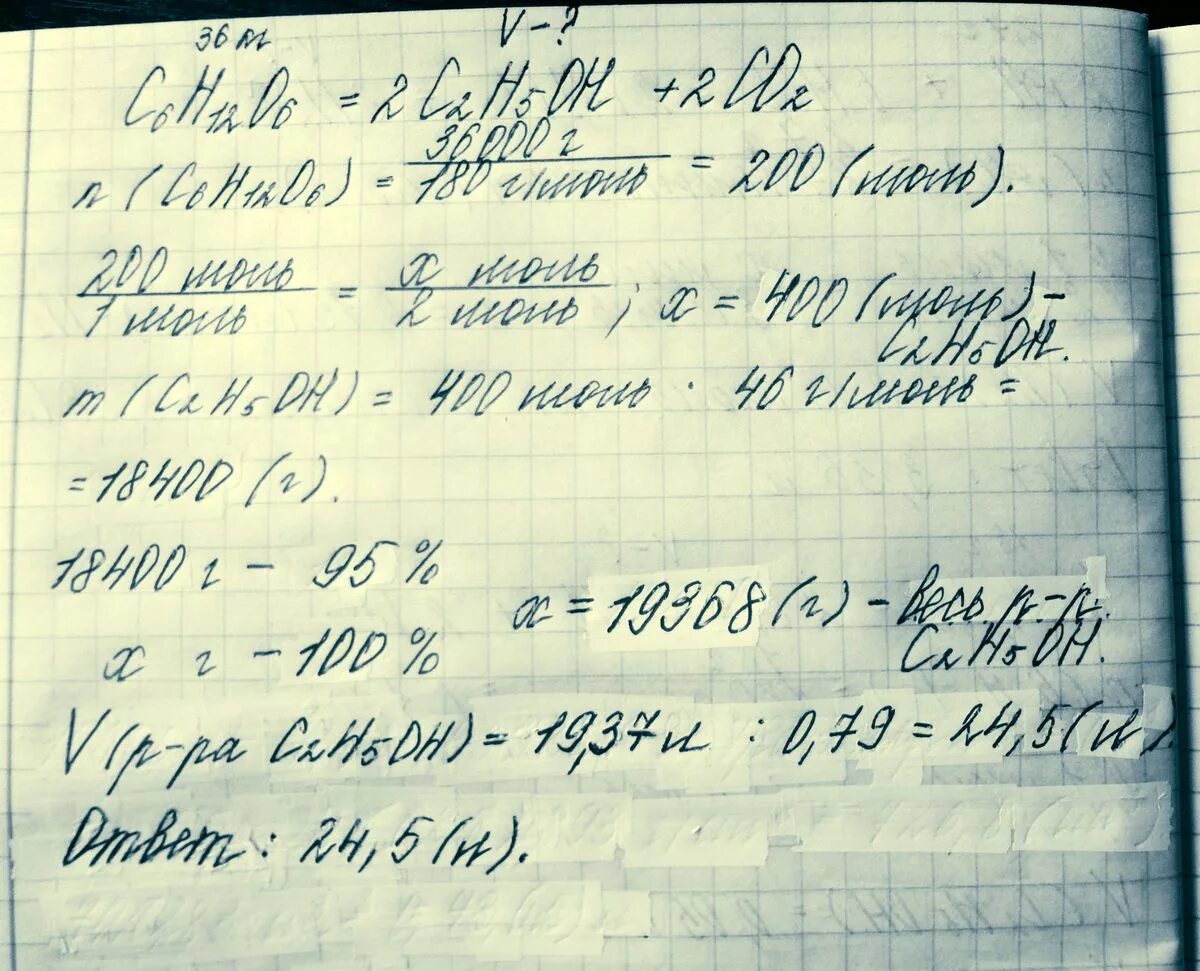 36 кг V - ?
C₆H₁₂O₆ = 2C₂H₅OH + 2CO₂
n (C₆H₁₂O₆) = 36000 г / 180 г/моль = 200 (моль).
200 моль / 1 моль = x моль / 2 моль ; x = 400 (моль) -
C₂H₅OH.
m (C₂H₅OH) = 400 моль · 46 г/моль =
= 18400 (г).
18400 г - 95 %
x = 19368 (г) - весь р-р.
x г - 100 % C₂H₅OH.
V (р-ра C₂H₅OH) = 19,37 л : 0,79 = 24,5 (л).
Ответ: 24,5 (л).